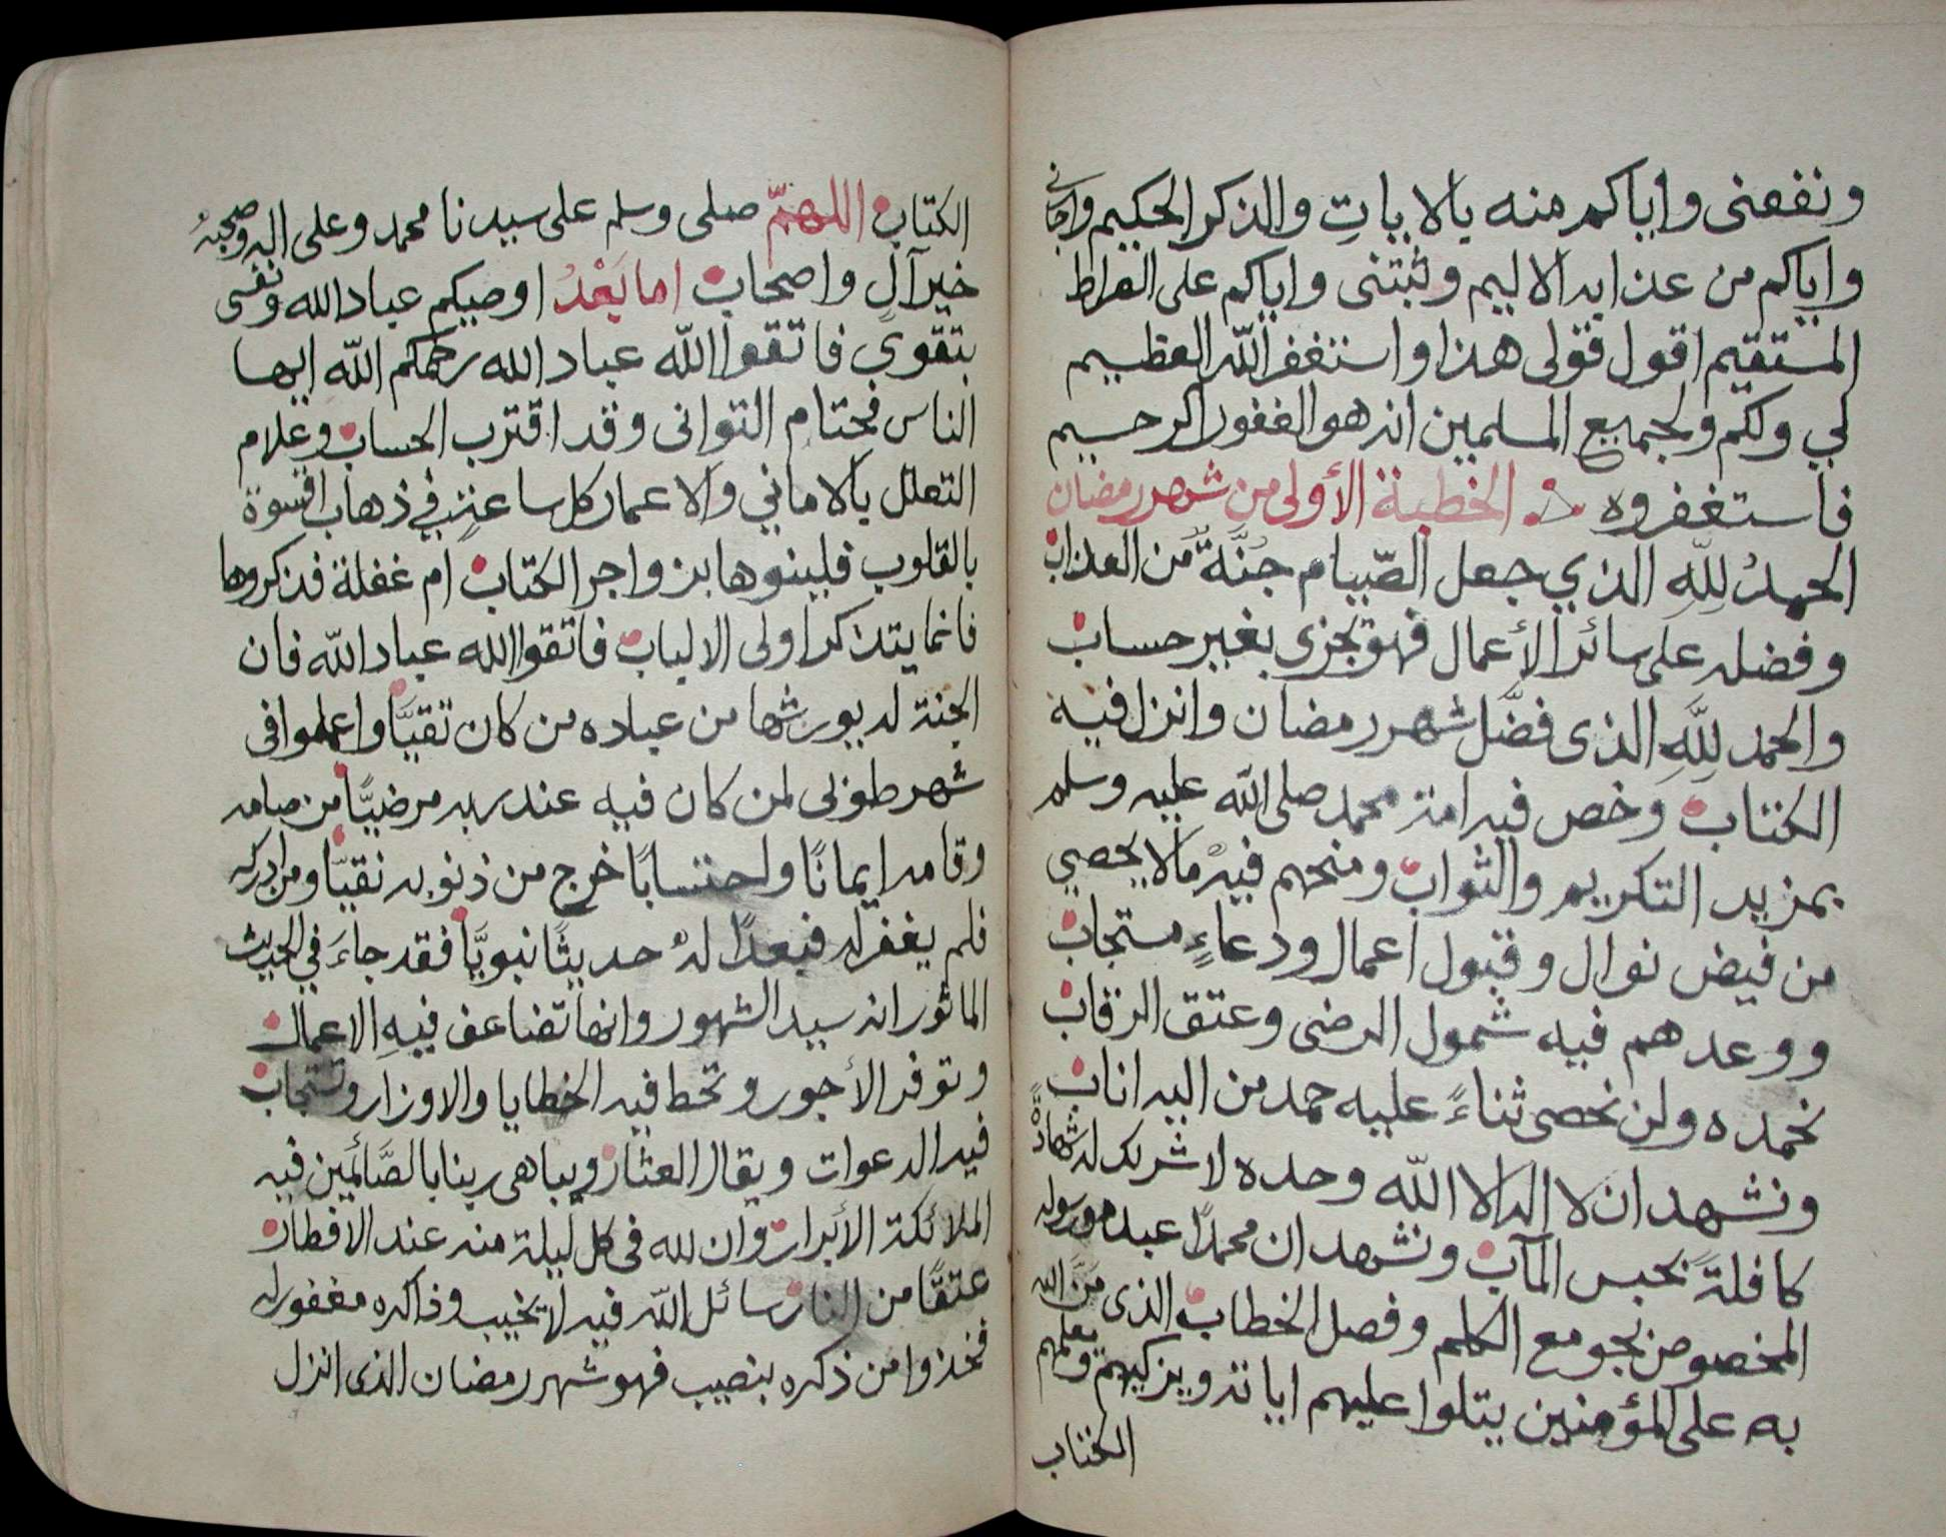 ونفعنى واياكم منه بالايات والذكر الحكيم واجانى
واياكم من عذابه الاليم وثبتنى واياكم على الصراط
المستقيم اقول قولى هذا واستغفر الله العظيم
لي ولكم ولجميع المسلمين انه هو الغفور الرحيم
فاستغفروه الخطبة الأولى من شهر رمضان
الحمدُ لِلّهِ الذي جعل الصّيام جُنَّةً من العذاب
وفضله على سائر الأعمال فهو يجزى بغير حساب
والحمد لِلَّهِ الذى فضَّل شهر رمضان وانزل فيه
الكتاب وخص فيه امة محمد صلى الله عليه وسلم
بمزيد التكريم والثواب ومنحهم فيه مالا يحصي
من فيض نوال وقبول اعمال ودعاءٍ مستجاب
ووعدهم فيه شمول الرضى وعتق الرقاب
نحمده ولن نحصى ثناءً عليه حمد من اليه اناب
ونشهد ان لا اله الا الله وحده لا شريك له شهادةً
كافلةً بحسن المآب ونشهد ان محمدًا عبده ورسوله
المخصوص بجومع الكلم وفصل الخطاب الذى مَنَّ الله
به على المؤمنين يتلوا عليهم اياته ويزكيهم ويعلمهم
الكتاب
الكتاب اللهمّ صلى وسلم على سيدنا محمد وعلى اله وصحبه
خير آلٍ واصحاب اما بَعْدُ اوصيكم عباد الله ونفسى
بتقوى فاتقوا الله عباد الله رحمكم الله ايها
الناس فحتام التوانى وقد اقترب الحساب وعلام
التعلل بالاماني والاعمار كل ساعة في ذهاب اقسوة
بالقلوب فلينوها بزواجر الكتاب ام غفلة فذكروها
فانما يتذكر اولى الالباب فاتقوا الله عباد الله فان
الجنة له يورثها من عباده من كان تقيَّا واعملوا فى
شهر طوبى لمن كان فيه عند ربه مرضيًّا من صامه
وقامه ايمانًا واحتسابًا خرج من ذنوبه نقيّا ومن ادركه
فلم يغفر له فبعدًا لهُ حديثًا نبويَّا فقد جاءَ في الحديث
الماثور انه سيد الشهور وانها تضاعف فيهِ الاعمال
وتوفر الأجور وتحط فيه الخطايا والاوزار وتستجاب
فيه الدعوات ويقال العثار ويباهى ربنا بالصَّائمين فيه
الملائكة الأبرار وان لله فى كل ليلة منه عند الافطار
عتقًا من النار سائل الله فيه لا يخيب وذاكره مغفور له
فخذوا من ذكره بنصيب فهو شهر رمضان الذى انزل